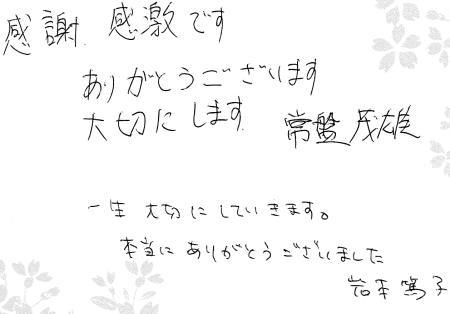 感謝 感激です
ありがとうございます
大切にします 常盤茂雄
一生 大切にしていきます。
本当に ありがとうございました
岩本篤子